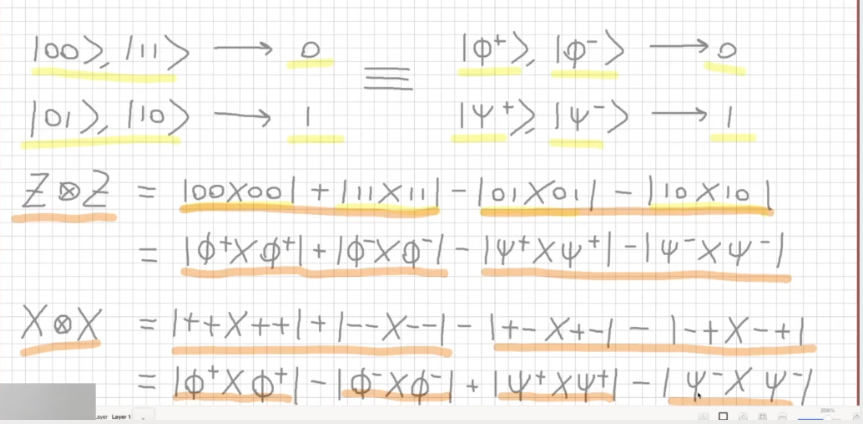 |00⟩, |11⟩ → 0 ≡ |ϕ⁺⟩, |ϕ⁻⟩ → 0
|01⟩, |10⟩ → 1 |Ψ⁺⟩, |Ψ⁻⟩ → 1
Z⊗Z = |00⟩⟨00| + |11⟩⟨11| - |01⟩⟨01| - |10⟩⟨10|
= |ϕ⁺⟩⟨ϕ⁺| + |ϕ⁻⟩⟨ϕ⁻| - |Ψ⁺⟩⟨Ψ⁺| - |Ψ⁻⟩⟨Ψ⁻|
X⊗X = |++⟩⟨++| + |--⟩⟨--| - |+-⟩⟨+-| - |-+⟩⟨-+|
= |ϕ⁺⟩⟨ϕ⁺| - |ϕ⁻⟩⟨ϕ⁻| + |Ψ⁺⟩⟨Ψ⁺| - |Ψ⁻⟩⟨Ψ⁻|
Layer 1